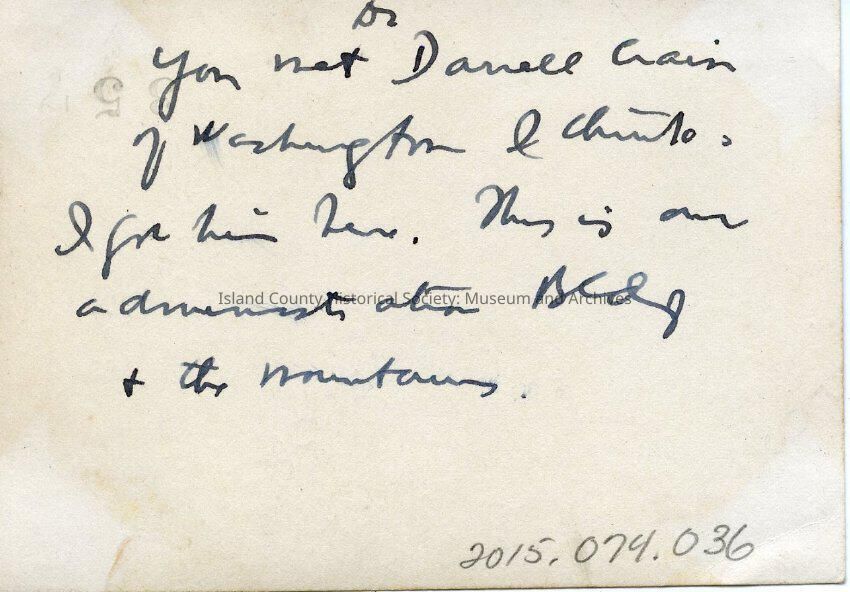 Dr
You met Darrell Crain
of Washington I think.
I got him here. This is our
administration Bldg
Island County Historical Society: Museum and Archives
+ the mountains.
2015.074.036